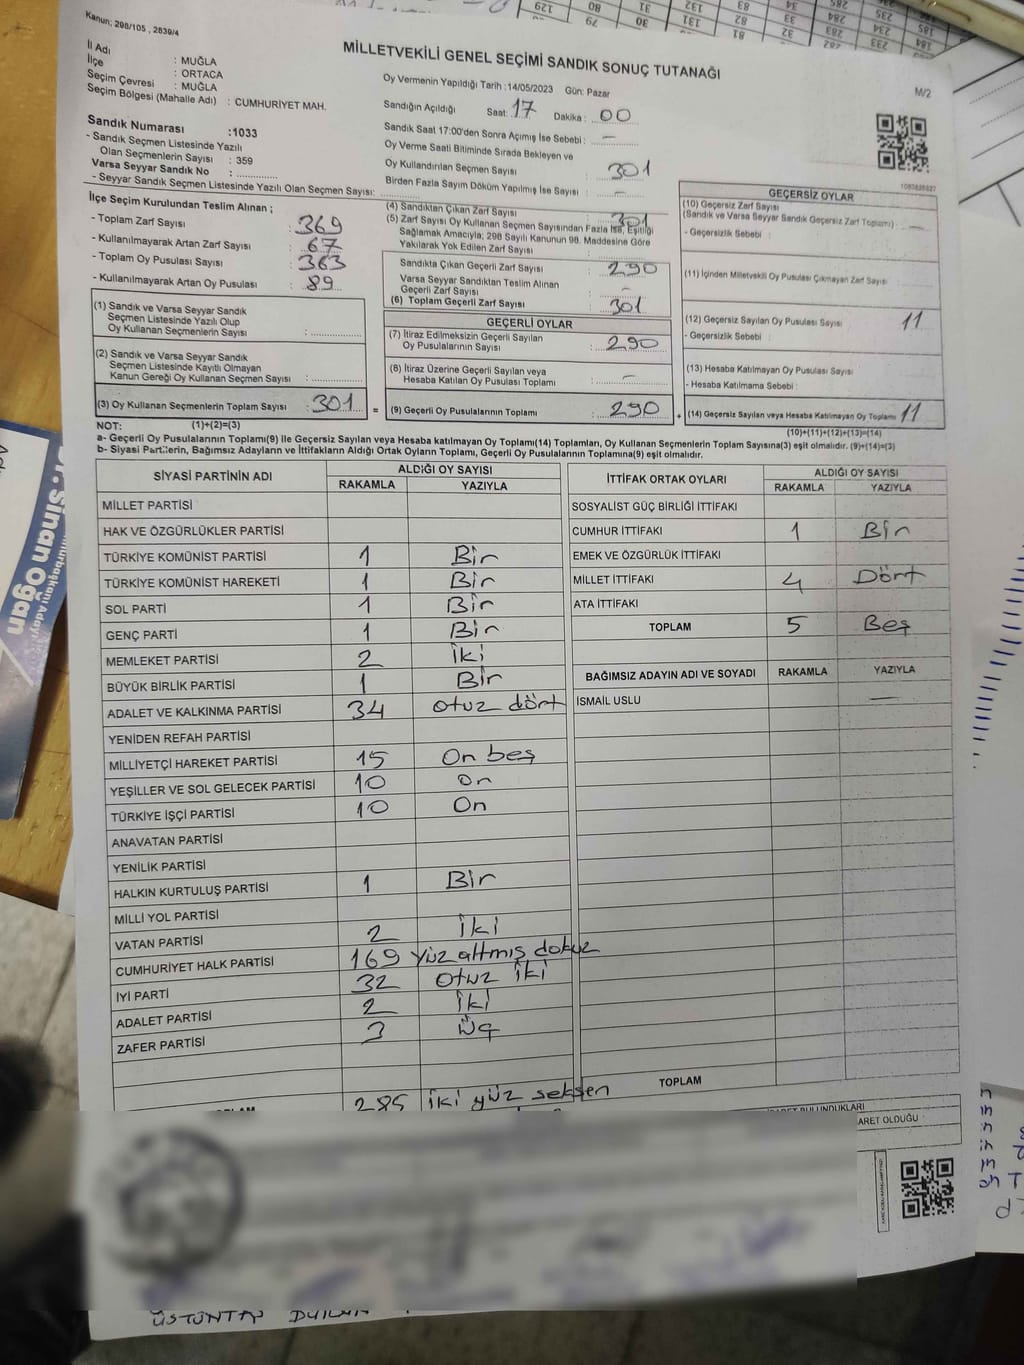 Kanun; 298/105 , 2839/4
MİLLETVEKİLİ GENEL SEÇİMİ SANDIK SONUÇ TUTANAĞI
M/2
İl Adı : MUĞLA
İlçe : ORTACA
Seçim Çevresi : MUĞLA
Seçim Bölgesi (Mahalle Adı) : CUMHURİYET MAH.
Sandık Numarası :1033
- Sandık Seçmen Listesinde Yazılı
Olan Seçmenlerin Sayısı : 359
Varsa Seyyar Sandık No :
- Seyyar Sandık Seçmen Listesinde Yazılı Olan Seçmen Sayısı:
Oy Vermenin Yapıldığı Tarih :14/05/2023 Gün: Pazar
Sandığın Açıldığı Saat: 17 Dakika : 00
Sandık Saat 17:00'den Sonra Açımış İse Sebebi : -
Oy Verme Saati Bitiminde Sırada Bekleyen ve
Oy Kullandırılan Seçmen Sayısı : 301
Birden Fazla Sayım Döküm Yapılmış İse Sayısı : -
İlçe Seçim Kurulundan Teslim Alınan ;
- Toplam Zarf Sayısı : 369
- Kullanılmayarak Artan Zarf Sayısı : 67
- Toplam Oy Pusulası Sayısı : 363
- Kullanılmayarak Artan Oy Pusulası : 89
(1) Sandık ve Varsa Seyyar Sandık
Seçmen Listesinde Yazılı Olup
Oy Kullanan Seçmenlerin Sayısı :
(2) Sandık ve Varsa Seyyar Sandık
Seçmen Listesinde Kayıtlı Olmayan
Kanun Gereği Oy Kullanan Seçmen Sayısı :
(3) Oy Kullanan Seçmenlerin Toplam Sayısı : 301 =
(1)+(2)=(3)
(4) Sandıktan Çıkan Zarf Sayısı : 301
(5) Zarf Sayısı Oy Kullanan Seçmen Sayısından Fazla İse, Eşitliği
Sağlamak Amacıyla; 298 Sayılı Kanunun 98. Maddesine Göre
Yakılarak Yok Edilen Zarf Sayısı :
Sandıkta Çıkan Geçerli Zarf Sayısı : 290
Varsa Seyyar Sandıktan Teslim Alınan
Geçerli Zarf Sayısı : -
(6) Toplam Geçerli Zarf Sayısı : 301
GEÇERLİ OYLAR
(7) İtiraz Edilmeksizin Geçerli Sayılan
Oy Pusulalarının Sayısı : 290
(8) İtiraz Üzerine Geçerli Sayılan veya
Hesaba Katılan Oy Pusulası Toplamı : -
(9) Geçerli Oy Pusulalarının Toplamı : 290 +
1083828827
GEÇERSİZ OYLAR
(10) Geçersiz Zarf Sayısı
(Sandık ve Varsa Seyyar Sandık Geçersiz Zarf Toplamı) : -
- Geçersizlik Sebebi :
(11) İçinden Milletvekili Oy Pusulası Çıkmayan Zarf Sayısı :
(12) Geçersiz Sayılan Oy Pusulası Sayısı : 11
- Geçersizlik Sebebi :
(13) Hesaba Katılmayan Oy Pusulası Sayısı :
- Hesaba Katılmama Sebebi :
(14) Geçersiz Sayılan veya Hesaba Katılmayan Oy Toplamı 11
(10)+(11)+(12)+(13)=(14)
NOT:
a- Geçerli Oy Pusulalarının Toplamı(9) ile Geçersiz Sayılan veya Hesaba katılmayan Oy Toplamı(14) Toplamları, Oy Kullanan Seçmenlerin Toplam Sayısına(3) eşit olmalıdır. (9)+(14)=(3)
b- Siyasi Partilerin, Bağımsız Adayların ve İttifakların Aldığı Ortak Oyların Toplamı, Geçerli Oy Pusulalarının Toplamına(9) eşit olmalıdır.
SİYASİ PARTİNİN ADI ALDIĞI OY SAYISI
RAKAMLA YAZIYLA
MİLLET PARTİSİ
HAK VE ÖZGÜRLÜKLER PARTİSİ
TÜRKİYE KOMÜNİST PARTİSİ 1 Bir
TÜRKİYE KOMÜNİST HAREKETİ 1 Bir
SOL PARTİ 1 Bir
GENÇ PARTİ 1 Bir
MEMLEKET PARTİSİ 2 iki
BÜYÜK BİRLİK PARTİSİ 1 Bir
ADALET VE KALKINMA PARTİSİ 34 otuz dört
YENİDEN REFAH PARTİSİ
MİLLİYETÇİ HAREKET PARTİSİ 15 On beş
YEŞİLLER VE SOL GELECEK PARTİSİ 10 on
TÜRKİYE İŞÇİ PARTİSİ 10 On
ANAVATAN PARTİSİ
YENİLİK PARTİSİ
HALKIN KURTULUŞ PARTİSİ 1 Bir
MİLLİ YOL PARTİSİ
VATAN PARTİSİ 2 İki
CUMHURİYET HALK PARTİSİ 169 yüz altmış dokuz
İYİ PARTİ 32 otuz iki
ADALET PARTİSİ 2 iki
ZAFER PARTİSİ 3 Üç
285 iki yüz seksen
İTTİFAK ORTAK OYLARI ALDIĞI OY SAYISI
RAKAMLA YAZIYLA
SOSYALİST GÜÇ BİRLİĞİ İTTİFAKI
CUMHUR İTTİFAKI 1 Bir
EMEK VE ÖZGÜRLÜK İTTİFAKI
MİLLET İTTİFAKI 4 Dört
ATA İTTİFAKI
TOPLAM 5 Beş
BAĞIMSIZ ADAYIN ADI VE SOYADI RAKAMLA YAZIYLA
İSMAİL USLU -
TOPLAM
BULUNDUKLARI
ARET OLDUĞU
sinan Oğan